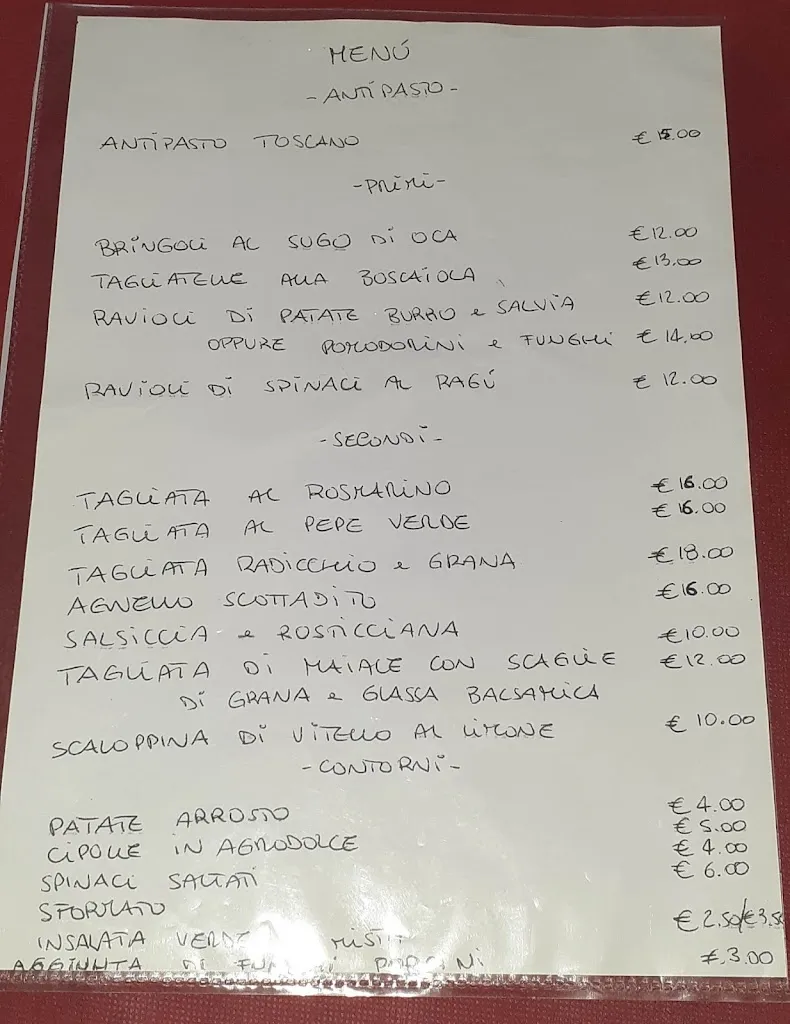 MENÚ
-ANTIPASTO-
ANTIPASTO TOSCANO € 15.00
-PRIMI-
BRINGOLI AL SUGO DI OCA €12.00
TAGLIATELLE ALLA BOSCAIOLA €13.00
RAVIOLI DI PATATE BURRO e SALVIA €12.00
OPPURE POMODORINI e FUNGHI € 14.00
RAVIOLI DI SPINACI AL RAGÚ € 12.00
-SECONDI-
TAGLIATA AL ROSMARINO € 16.00
TAGLIATA AL PEPE VERDE € 16.00
TAGLIATA RADICCHIO e GRANA € 18.00
AGNELLO SCOTTADITO €16.00
SALSICCIA e ROSTICCIANA €10.00
TAGLIATA DI MAIALE CON SCAGLIE €12.00
DI GRANA e GLASSA BALSAMICA
SCALOPPINA DI VITELLO AL LIMONE € 10.00
-CONTORNI-
PATATE ARROSTO € 4.00
CIPOLLE IN AGRODOLCE € 5.00
SPINACI SALTATI € 4.00
SFORMATO € 6.00
INSALATA VERDE MISTA € 2.50/€3.50
AGGIUNTA DI FUNGHI PORCINI €.3.00